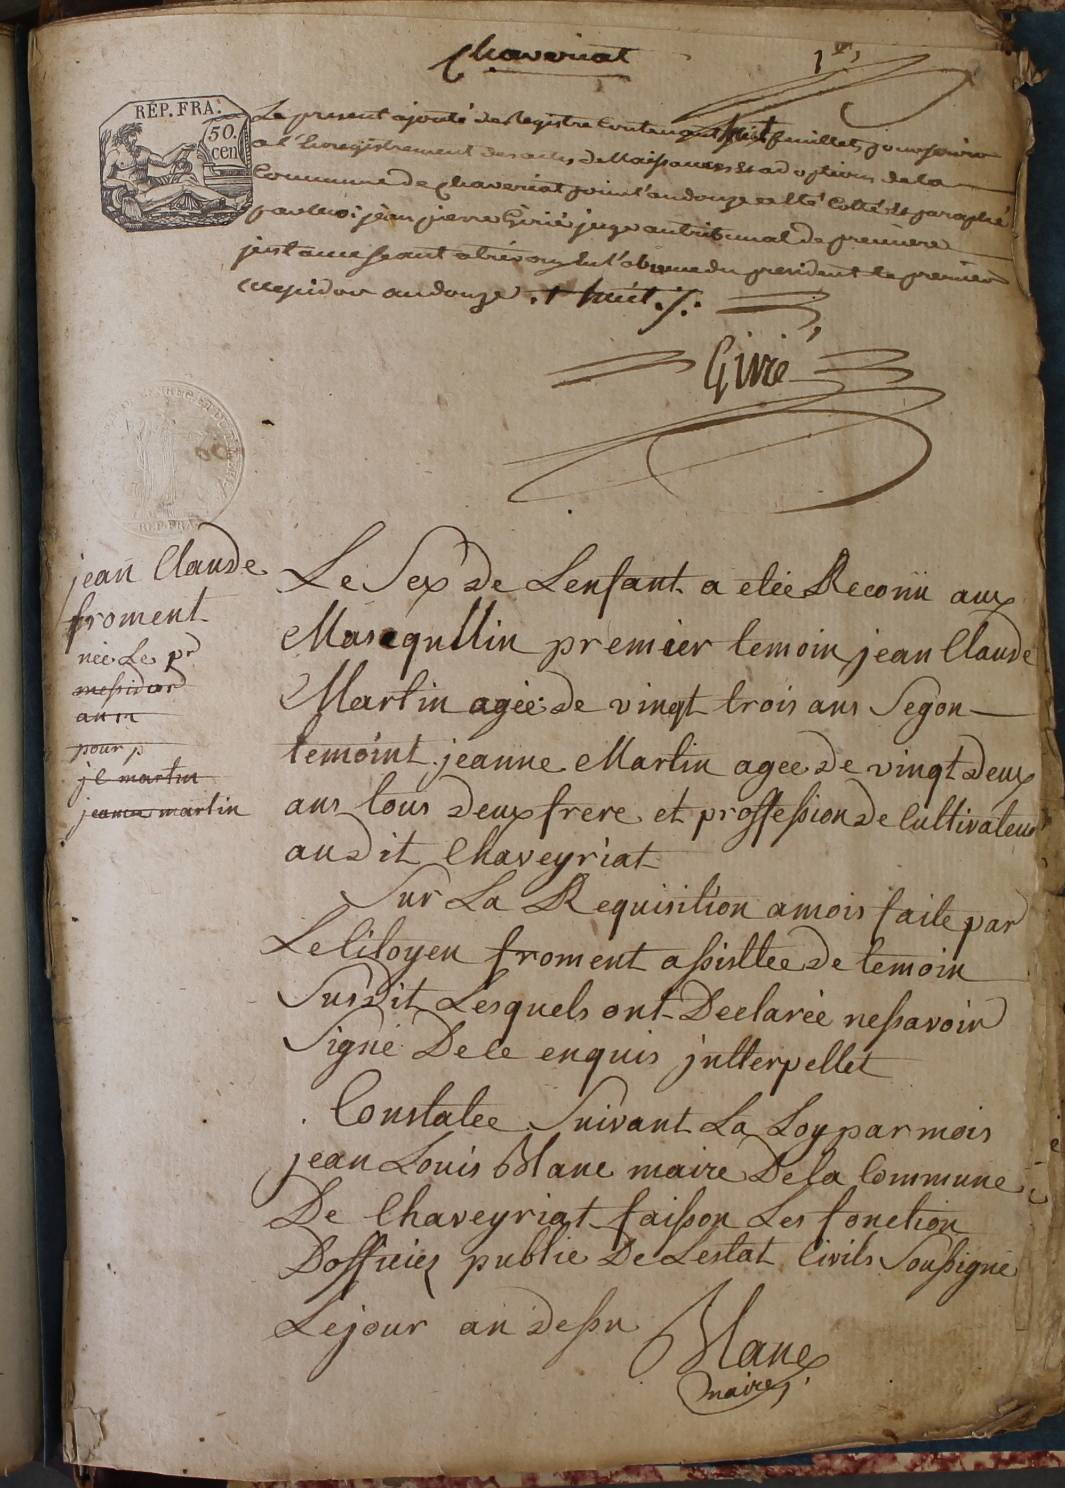 Chaveriat
1er
RÉP. FRA.
50.
cen
Le present ajouté de Registre Contenant huit feuillets, pour servir
a l'Enregistrement des actes de Naissances et adoptions de la
Commune de Chaveriat pour l'an douze a été Cotté et paraphé
par moi jean pierre Givié juge au tribunal de premiere
jnstance seant a trévoux sur l'absence du president le premier
messidor an douze . huit ./.
Givié
jean Claude
froment
née Le pr
messidor
an 12
pour p
jc martin
jeanne martin
Le Sex de Lenfant a etée Reconü aux
Masequllin premier temoin jean Claude
Martin agée de vingt trois ans Segon
temoint jeanne Martin agee de vingt deux
ans tous deux frere et proffession de Cultivateur
audit Chaveyriat
Sur La Requisition a mois faite par
Le Citoyen froment assistee de temoin
Susdit Lesquels ont Declarée ne savoir
Signé De ce enquis jntterpellet
Constatee Suivant La Loy par mois
jean Louis Blanc maire De la Commune
De Chaveyriat faisson Les fonction
Dofficiez public De Lestat Civils Soussigné
Le jour an dessu
Blanc
maire
REP. FRA